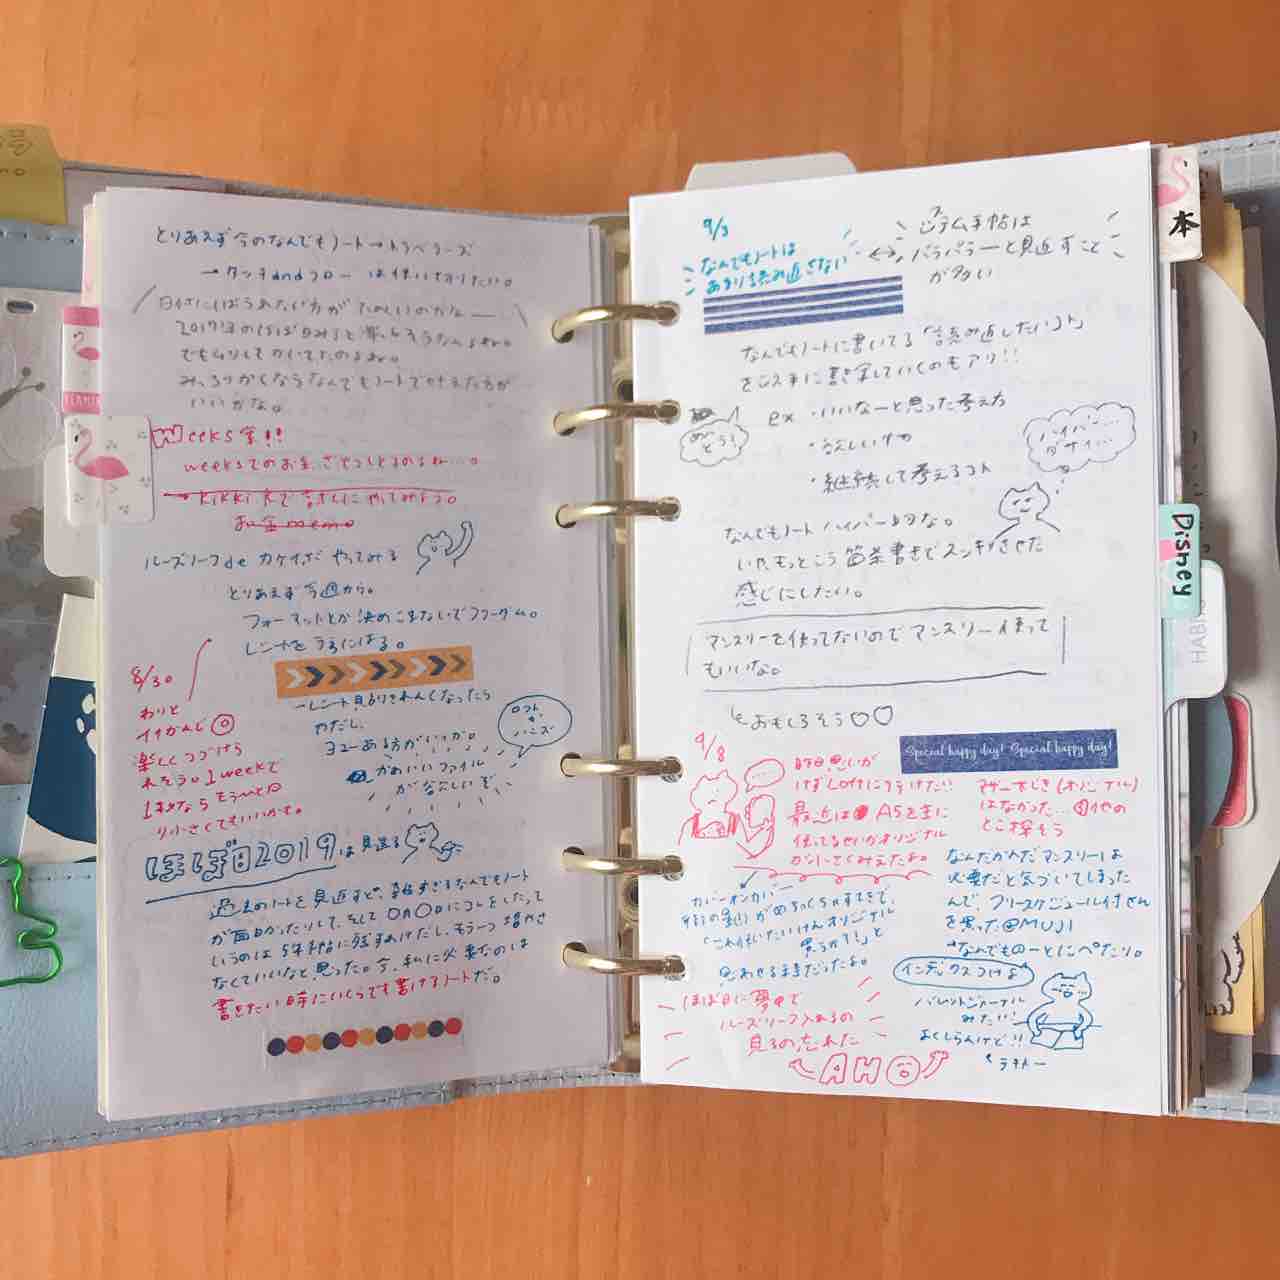 とりあえず今のなんでもノート→トラベラーズ
→タッチandフロー は使い切りたい。
日付にしばられない方がたのしいのかなー
2017年のほぼ日みると楽しそうなんよね。
でもムリしてかいてたのよね。
いいかな。
Weeks 家!!
weeksでのお金
kikki.Kで
お金memo
ルーズリーフdeカケイボ やってみる
とりあえず今週から。
フォーマットとか決めこまないでフリーダム。
レシートをうらにはる。
8/30
わりと
イイかんじ◎
楽しくつづけら
れそう。1weekで
1枚なら もうひと回
り小さくてもいいかも。
→レシート見るりきれんくなったら
やだし、
ロフト
か
ハンズ
かわいいファイル
が欲しいぞ
ほぼ日2019は見送る
過去のノートを見返すと、雑すぎるなんでもノート
が面白かったりして、そして〇月〇日にコレをしたって
いうのは5年手帖に残すわけだし、もう一つ増やさ
なくていいなと思った。今、私に必要なのは
書きたい時にいくらでも書けるノートだ。
9/3
なんでもノートは
あまり読み返さない
↔
システム手帖は
パラパラーと見返すこと
が多い
なんでもノートに書いてる「読み返したいコト」
をシス手に書き写していくのもアリ!!
めん
どう!
ex ・いいなーと思った考え方
・欲しいもの
・継続して考えるコト
ハイパー…
ダサイ…
なんでもノート ハイパー的な。
いや、もっとこう箇条書きでスッキリさせた
感じにしたい。
マンスリーを使ってないのでマンスリー使って
もいいな。
おもしろそう♡♡
9/8
Special happy day! Special happy day!
昨日思いが
けずLoftに行けた!!
最近は A5を主に
使ってるせいかオリジナル
が小さくみえたよね。
マザー大じき(オリジナル)
はなかった…他の
とこ探そう
カバーオンカバー
街の星が めちゃくちゃすてきで、
「これ使いたいけんオリジナル
買うか?!」と
思わせるまでだったよね。
なんだかんだマンスリーは
必要だと気づいてしまった
んで、フリースケジュール付せん
を買った@MUJI
→なんでものーとにペたり。
インデックスつけよ
バレットジャーナル
みたい!
よくしらんけど!!
ほぼ日に夢中で
ルーズリーフ入れるの
見るの忘れた
AHO
本
Disney
HABI